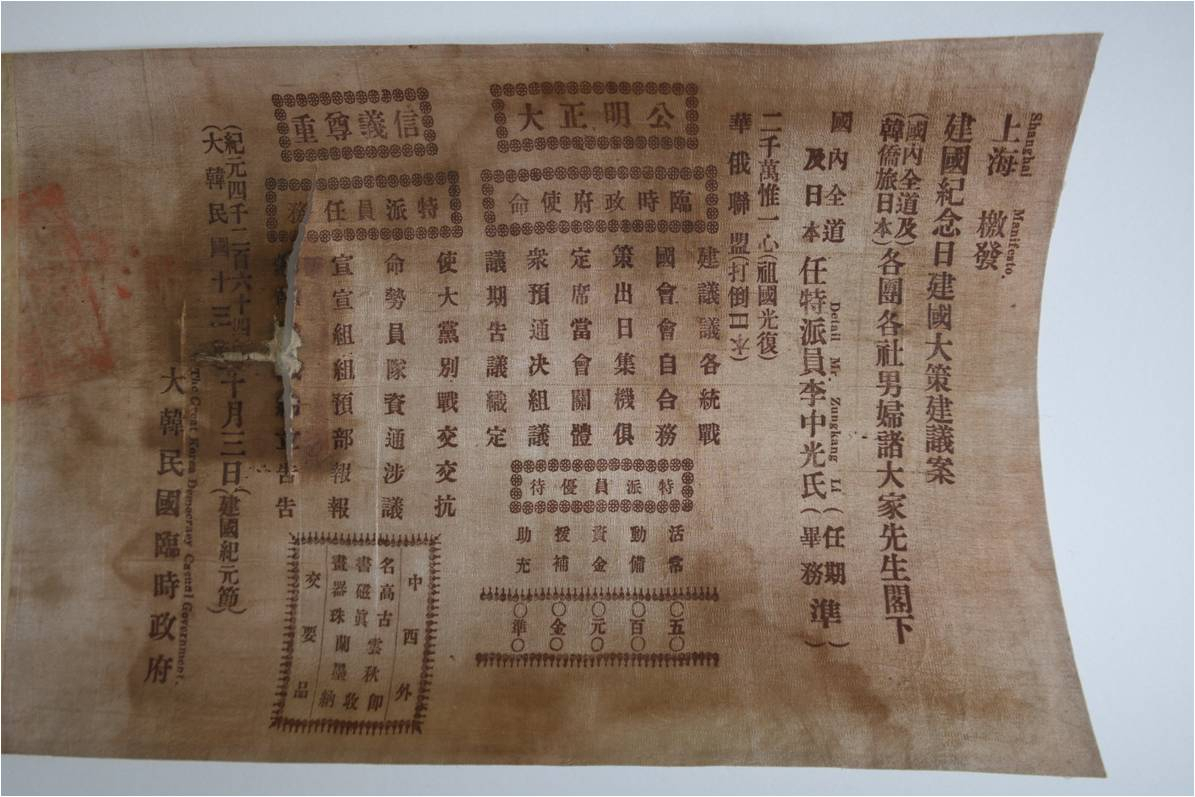 Shanghai Manifesto.
上海 檄發
建國紀念日建國大策建議案
(國內全道及
韓僑旅日本)各團各社男婦諸大家先生閣下
國內全道
及日本 任特派員李中光氏(任期
畢務 準)
Detail Mr. Zungkang Li
二千萬惟一心(祖國光復)
華俄聯盟(打倒日本)
公明正大
臨時政府使命
建議議各統戰
國會會自合務
策出日集機俱
定席當會關體
衆預通決組議
議期告議織定
特派員優待
活常
動備
資金
援補
助充
〇五〇
〇百〇
〇元〇
〇金〇
〇準〇
信義尊重
特派員任務
使大黨別戰交交抗
命勢員隊資通涉議
宣宣組組預部報報
宣告告
中西外
名高古雲秋卽
書磁眞收
畫器珠蘭墨納
交要品
(紀元四千二百六十四 十月三日(建國紀元節)
(大韓民國十三
The Great Korea Democracy Government.
大韓民國臨時政府